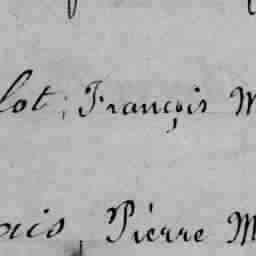 lot, François M
ois, Pierre M